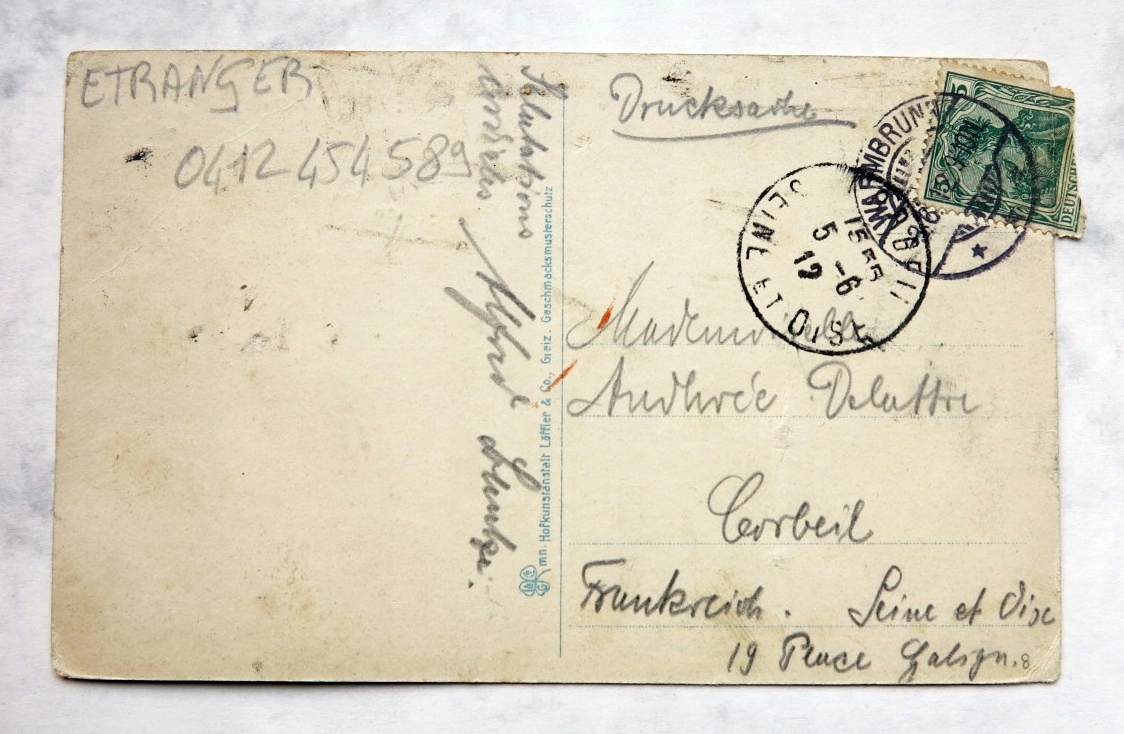 ETRANGER
0412 454 589
Salutations
amicales Alfred
mn. Hofkunstanstalt Löffler & Co., Greiz. Geschmacksmusterschutz
Drucksache
WARMBRUNN
5
DEUTSCHES
SEINE ET OISE
15 55
5 - 6
12
Mademoiselle
Andhrée Delattre
Corbeil
Frankreich. Seine et Oise
19 Place Galign.
8